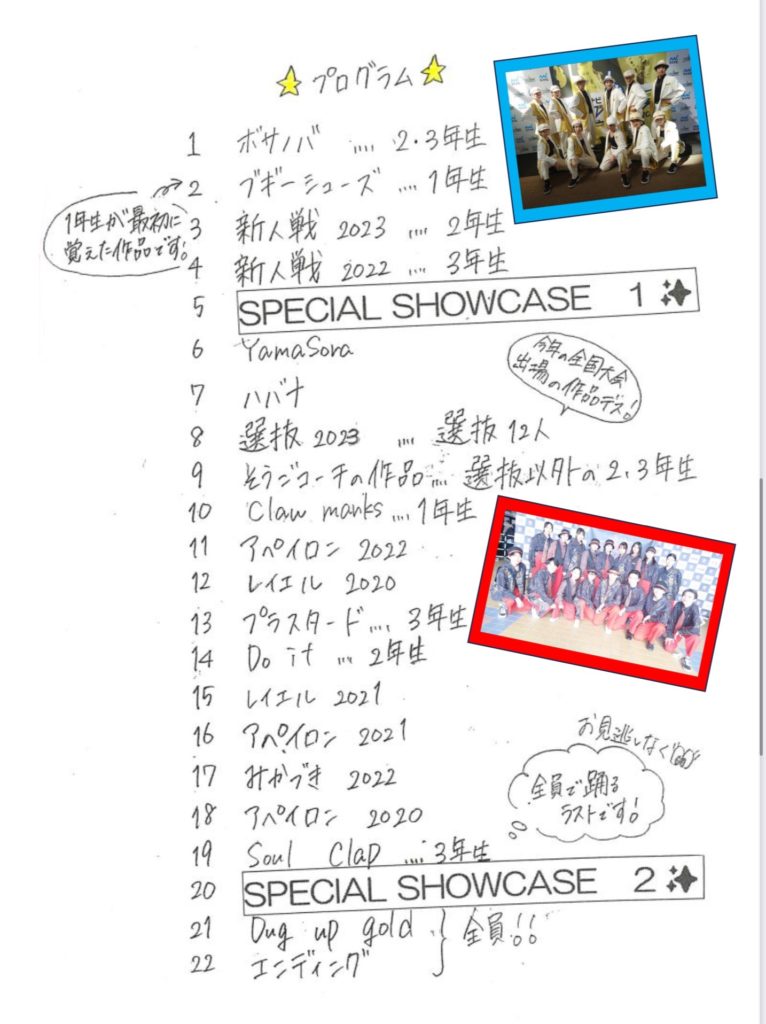 プログラム
1 ボサノバ .... 2・3年生
2 ブギーシューズ .... 1年生
1年生が最初に
覚えた作品です!
3 新人戦 2023 .... 2年生
4 新人戦 2022 .... 3年生
5 SPECIAL SHOWCASE 1
6 YamaSora
今年の全国大会
出場の作品デス!
7 ハバナ
8 選抜 2023 .... 選抜12人
9 そうごコーチの作品.... 選抜以外の2、3年生
10 Claw marks .... 1年生
11 アペイロン 2022
12 レイエル 2020
13 プラスタード.... 3年生
14 Do it .... 2年生
15 レイエル 2021
16 アペイロン 2021
お見逃しなく
17 みかづき 2022
全員で踊る
ラストです!
18 アペイロン 2020
19 Soul Clap .... 3年生
20 SPECIAL SHOWCASE 2
21 Dug up gold
22 エンディング
全員!!